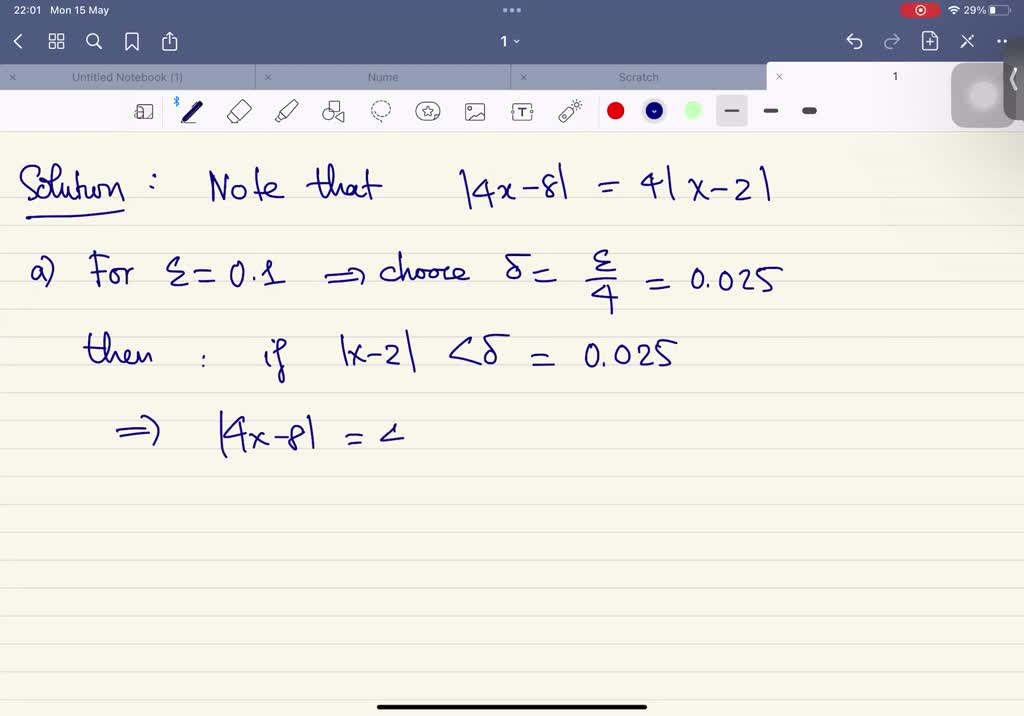 22:01 Mon 15 May
29%
1
Untitled Notebook (1)
Nume
Scratch
1
Solution : Note that |4x-8| = 4|x-2|
a) For ε = 0.1 ⇒ choose δ = ε/4 = 0.025
then : if |x-2| < δ = 0.025
⇒ |4x-8| = <